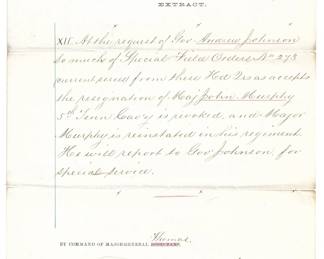 EXTRACT.
XII. At the request of Gov. Andrew Johnson
so much of Special Field Orders No 273
current series from these Hd Qrs as accepts
the resignation of Maj John Murphy
5th Tenn Cavy is revoked, and Major
Murphy is reinstated in his regiment
He will report to Gov Johnson, for
special service.
Thomas,
BY COMMAND OF MAJOR GENERAL